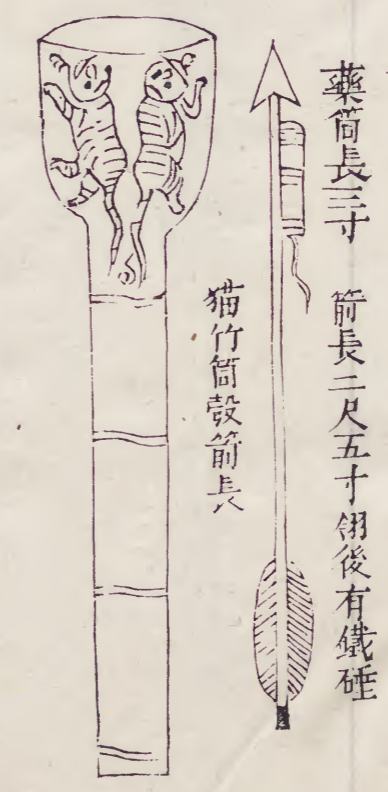 藥筒長三寸　箭長二尺五寸翎後有鐵硾
猫竹筒彀箭長